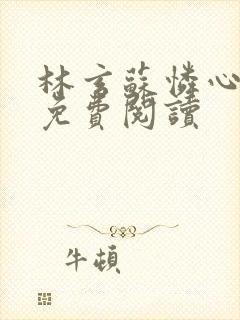 林言蘇憐心
免費閱讀
牛頓